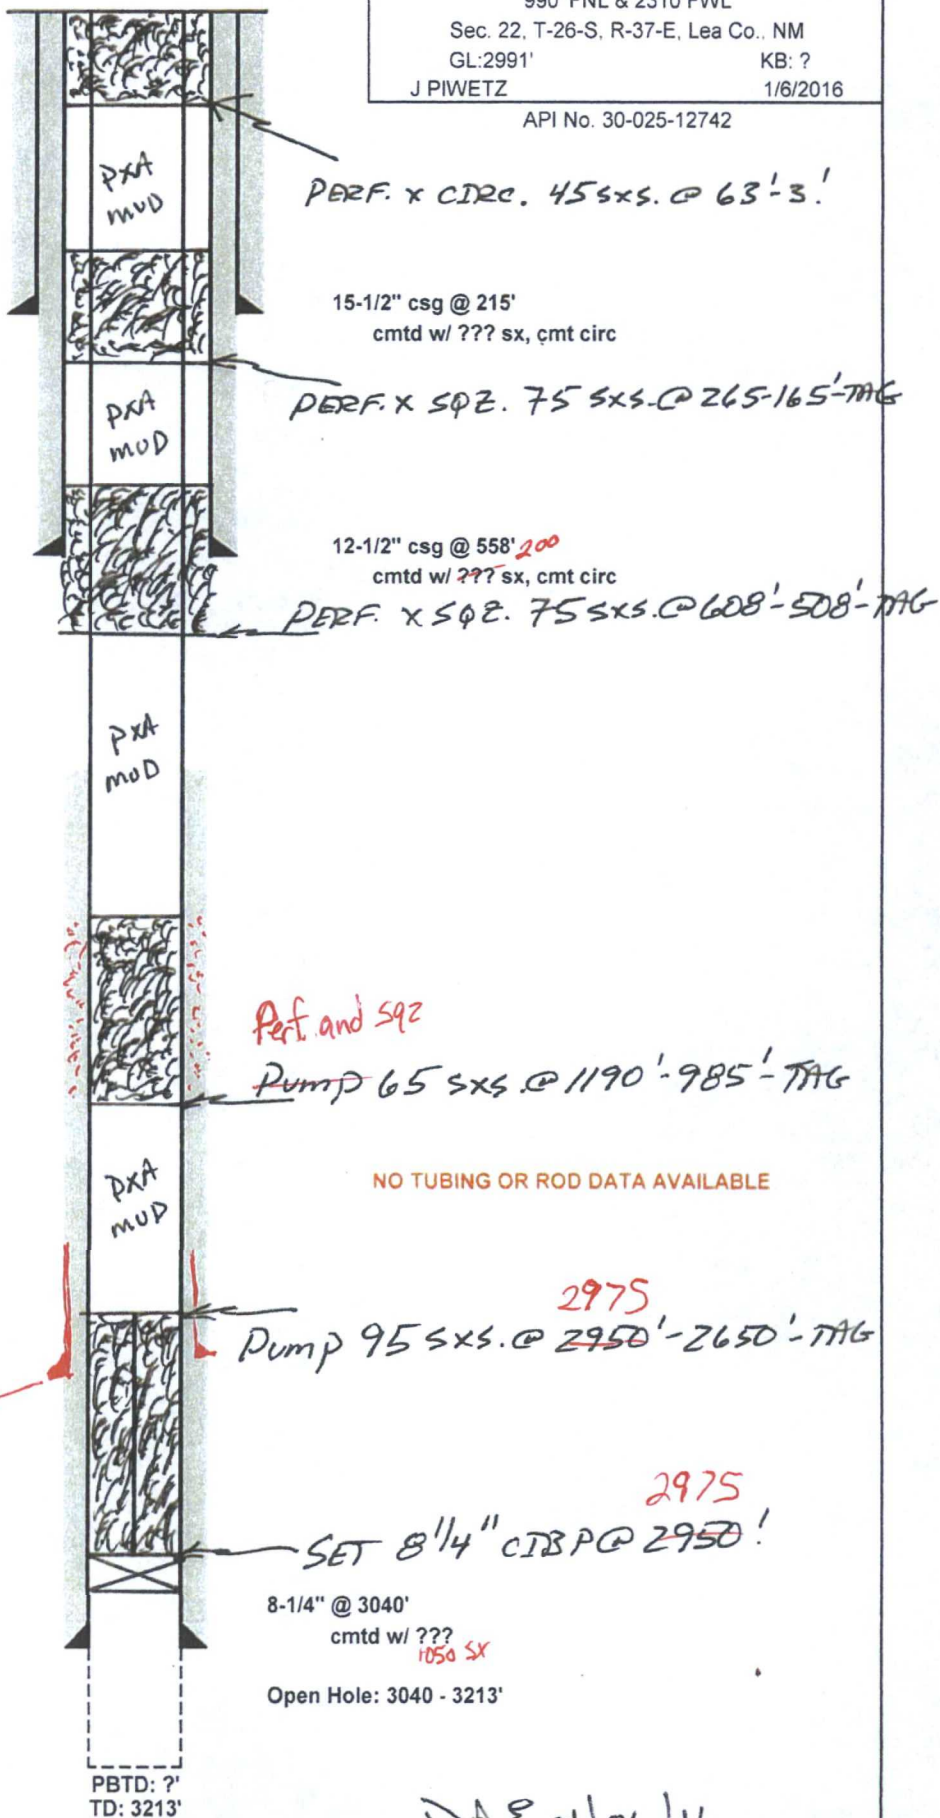 990' FNL & 2310 FWL
Sec. 22, T-26-S, R-37-E, Lea Co., NM
GL:2991' KB: ?
J PIWETZ 1/6/2016
API No. 30-025-12742
PXA
MUD
PERF. X CIRC. 45 SXS. @ 63'-3'
15-1/2" csg @ 215'
cmtd w/ ??? sx, cmt circ
PERF. X SQZ. 75 SXS. @ 265-165'-TAG
PXA
MUD
12-1/2" csg @ 558' 200
cmtd w/ ??? sx, cmt circ
PERF. X SQZ. 75 SXS. @ 608'-508'-TAG
PXA
MUD
Perf. and SQZ
Pump 65 SXS. @ 1190'-985'-TAG
PXA
MUD
NO TUBING OR ROD DATA AVAILABLE
2975
Pump 95 SXS. @ 2950'-2650'-TAG
2975
SET 8 1/4" CIBP @ 2950'
8-1/4" @ 3040'
cmtd w/ ???
1050 SX
Open Hole: 3040 - 3213'
PBTD: ?'
TD: 3213'